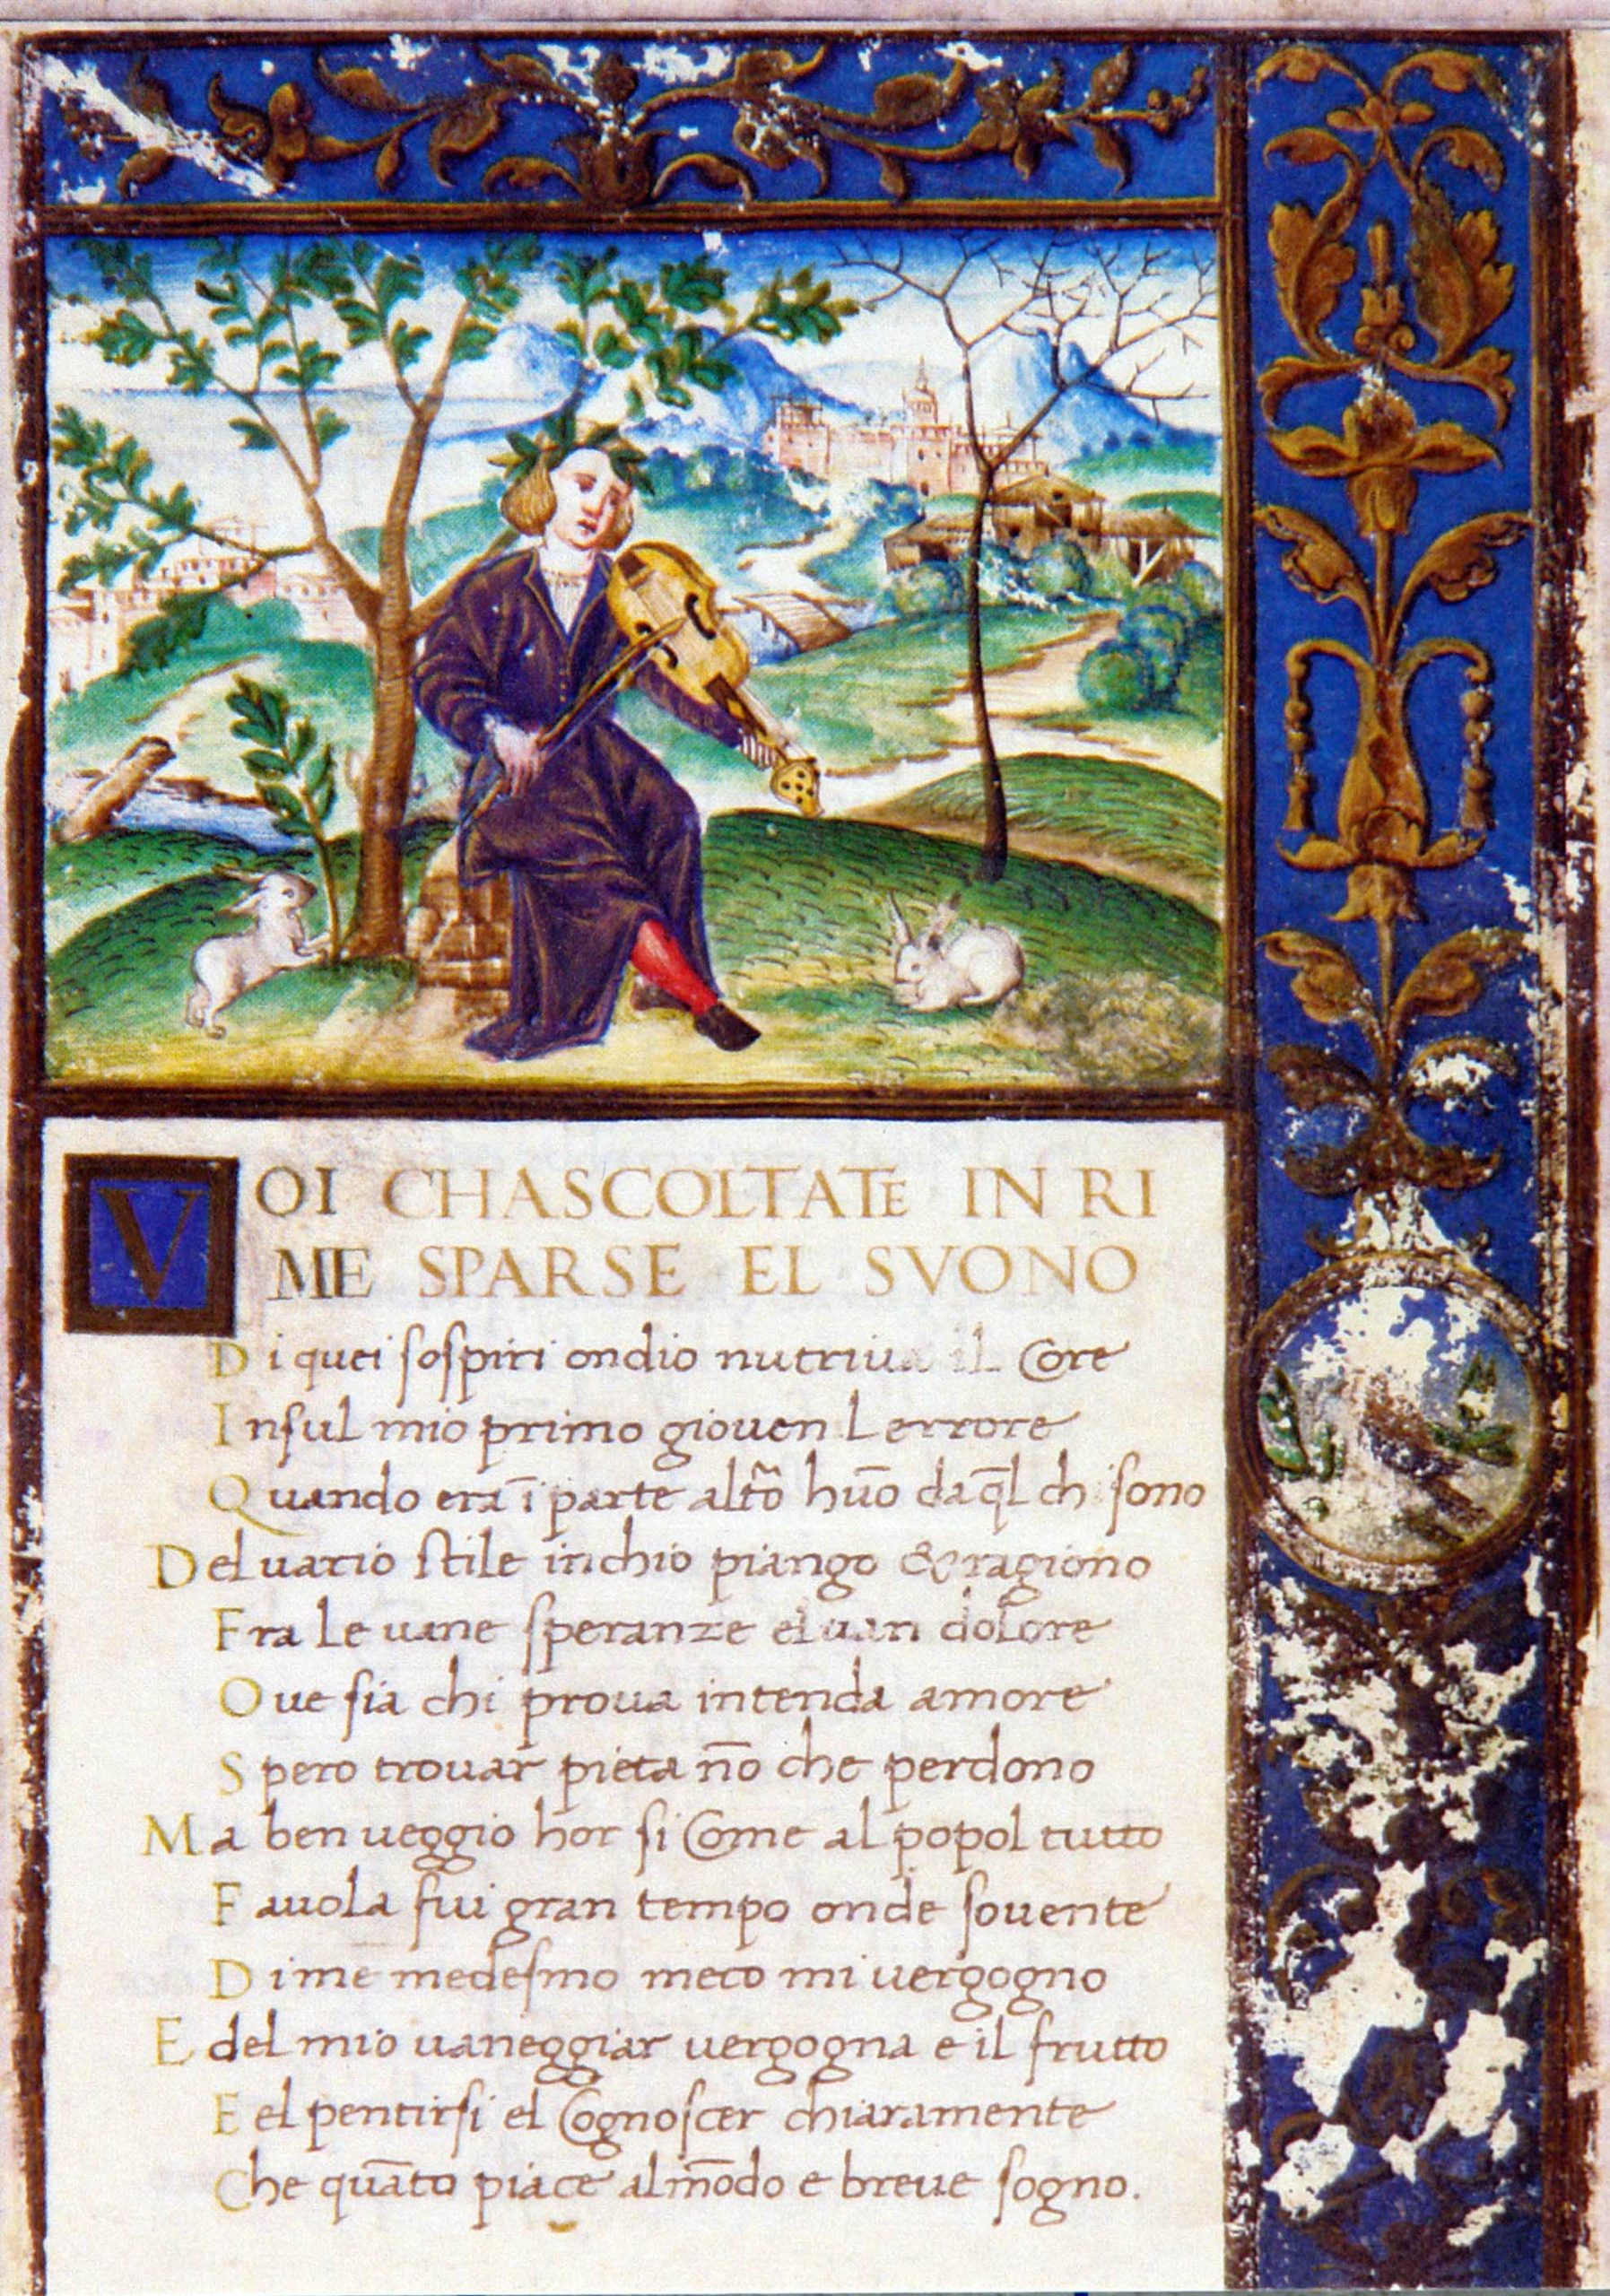 VOI CHASCOLTATE IN RI
ME SPARSE EL SVONO
Di quei sospiri ondio nutriua il Core
Insul mio primo giouenL errore
Quando erā ī parte alto᷈ huō daq̄l ch sono
Deluario stile inchio piango & ragiono
Fra Le uane speranze eluan dolore
Oue sia chi proua intenda amore
Spero trouar pieta nō che perdono
Ma ben ueggio hor si Come al popol tutto
Fauola fui gran tempo onde souente
Dime medesmo meco mi uergogno
E del mio uaneggiar uergogna e il frutto
E el pentirsi el Cognoscer chiaramente
Che quāto piace almōdo e breue sogno.